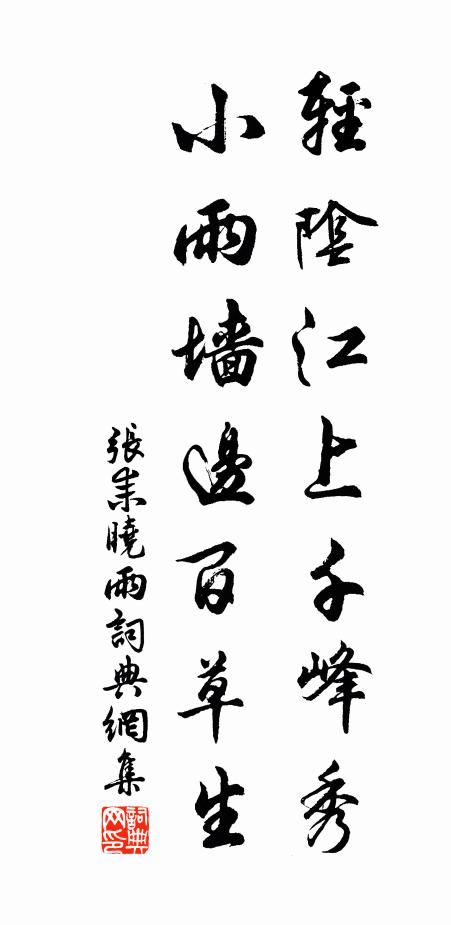 輕陰江上千峰秀
小雨墻邊百草生
張耒曉雨詞典網集
詞典
网印